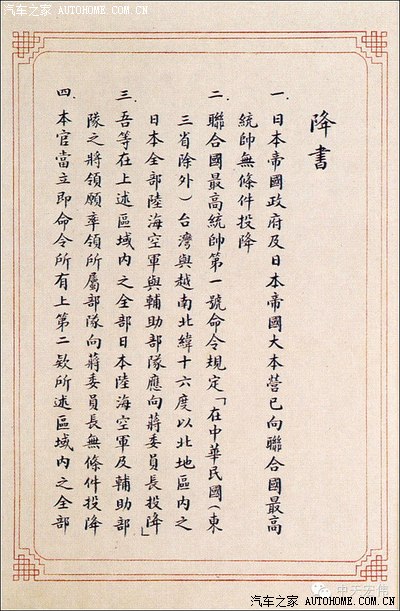 汽车之家 AUTOHOME.COM.CN
降書
一、日本帝國政府及日本帝國大本營已向聯合國最高
統帥無條件投降
二、聯合國最高統帥第一號命令規定「在中華民國(東
三省除外)台灣與越南北緯十六度以北地區內之
日本全部陸海空軍與輔助部隊應向蔣委員長投降」
三、吾等在上述區域內之全部日本陸海空軍及輔助部
隊之將領願率領所屬部隊向蔣委員長無條件投降
四、本官當立即命令所有上第二欵所述區域內之全部
中天宏伟
汽车之家 AUTOHOME.COM.CN